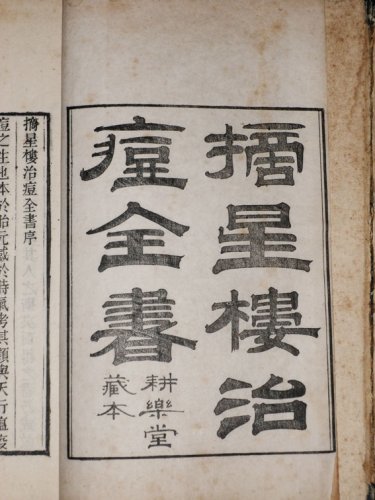 摘星樓治
痘全書
耕樂堂
藏本
摘星樓治痘全書序
痘之性也本於胎元感於時氣考其顏與天行瘟疫